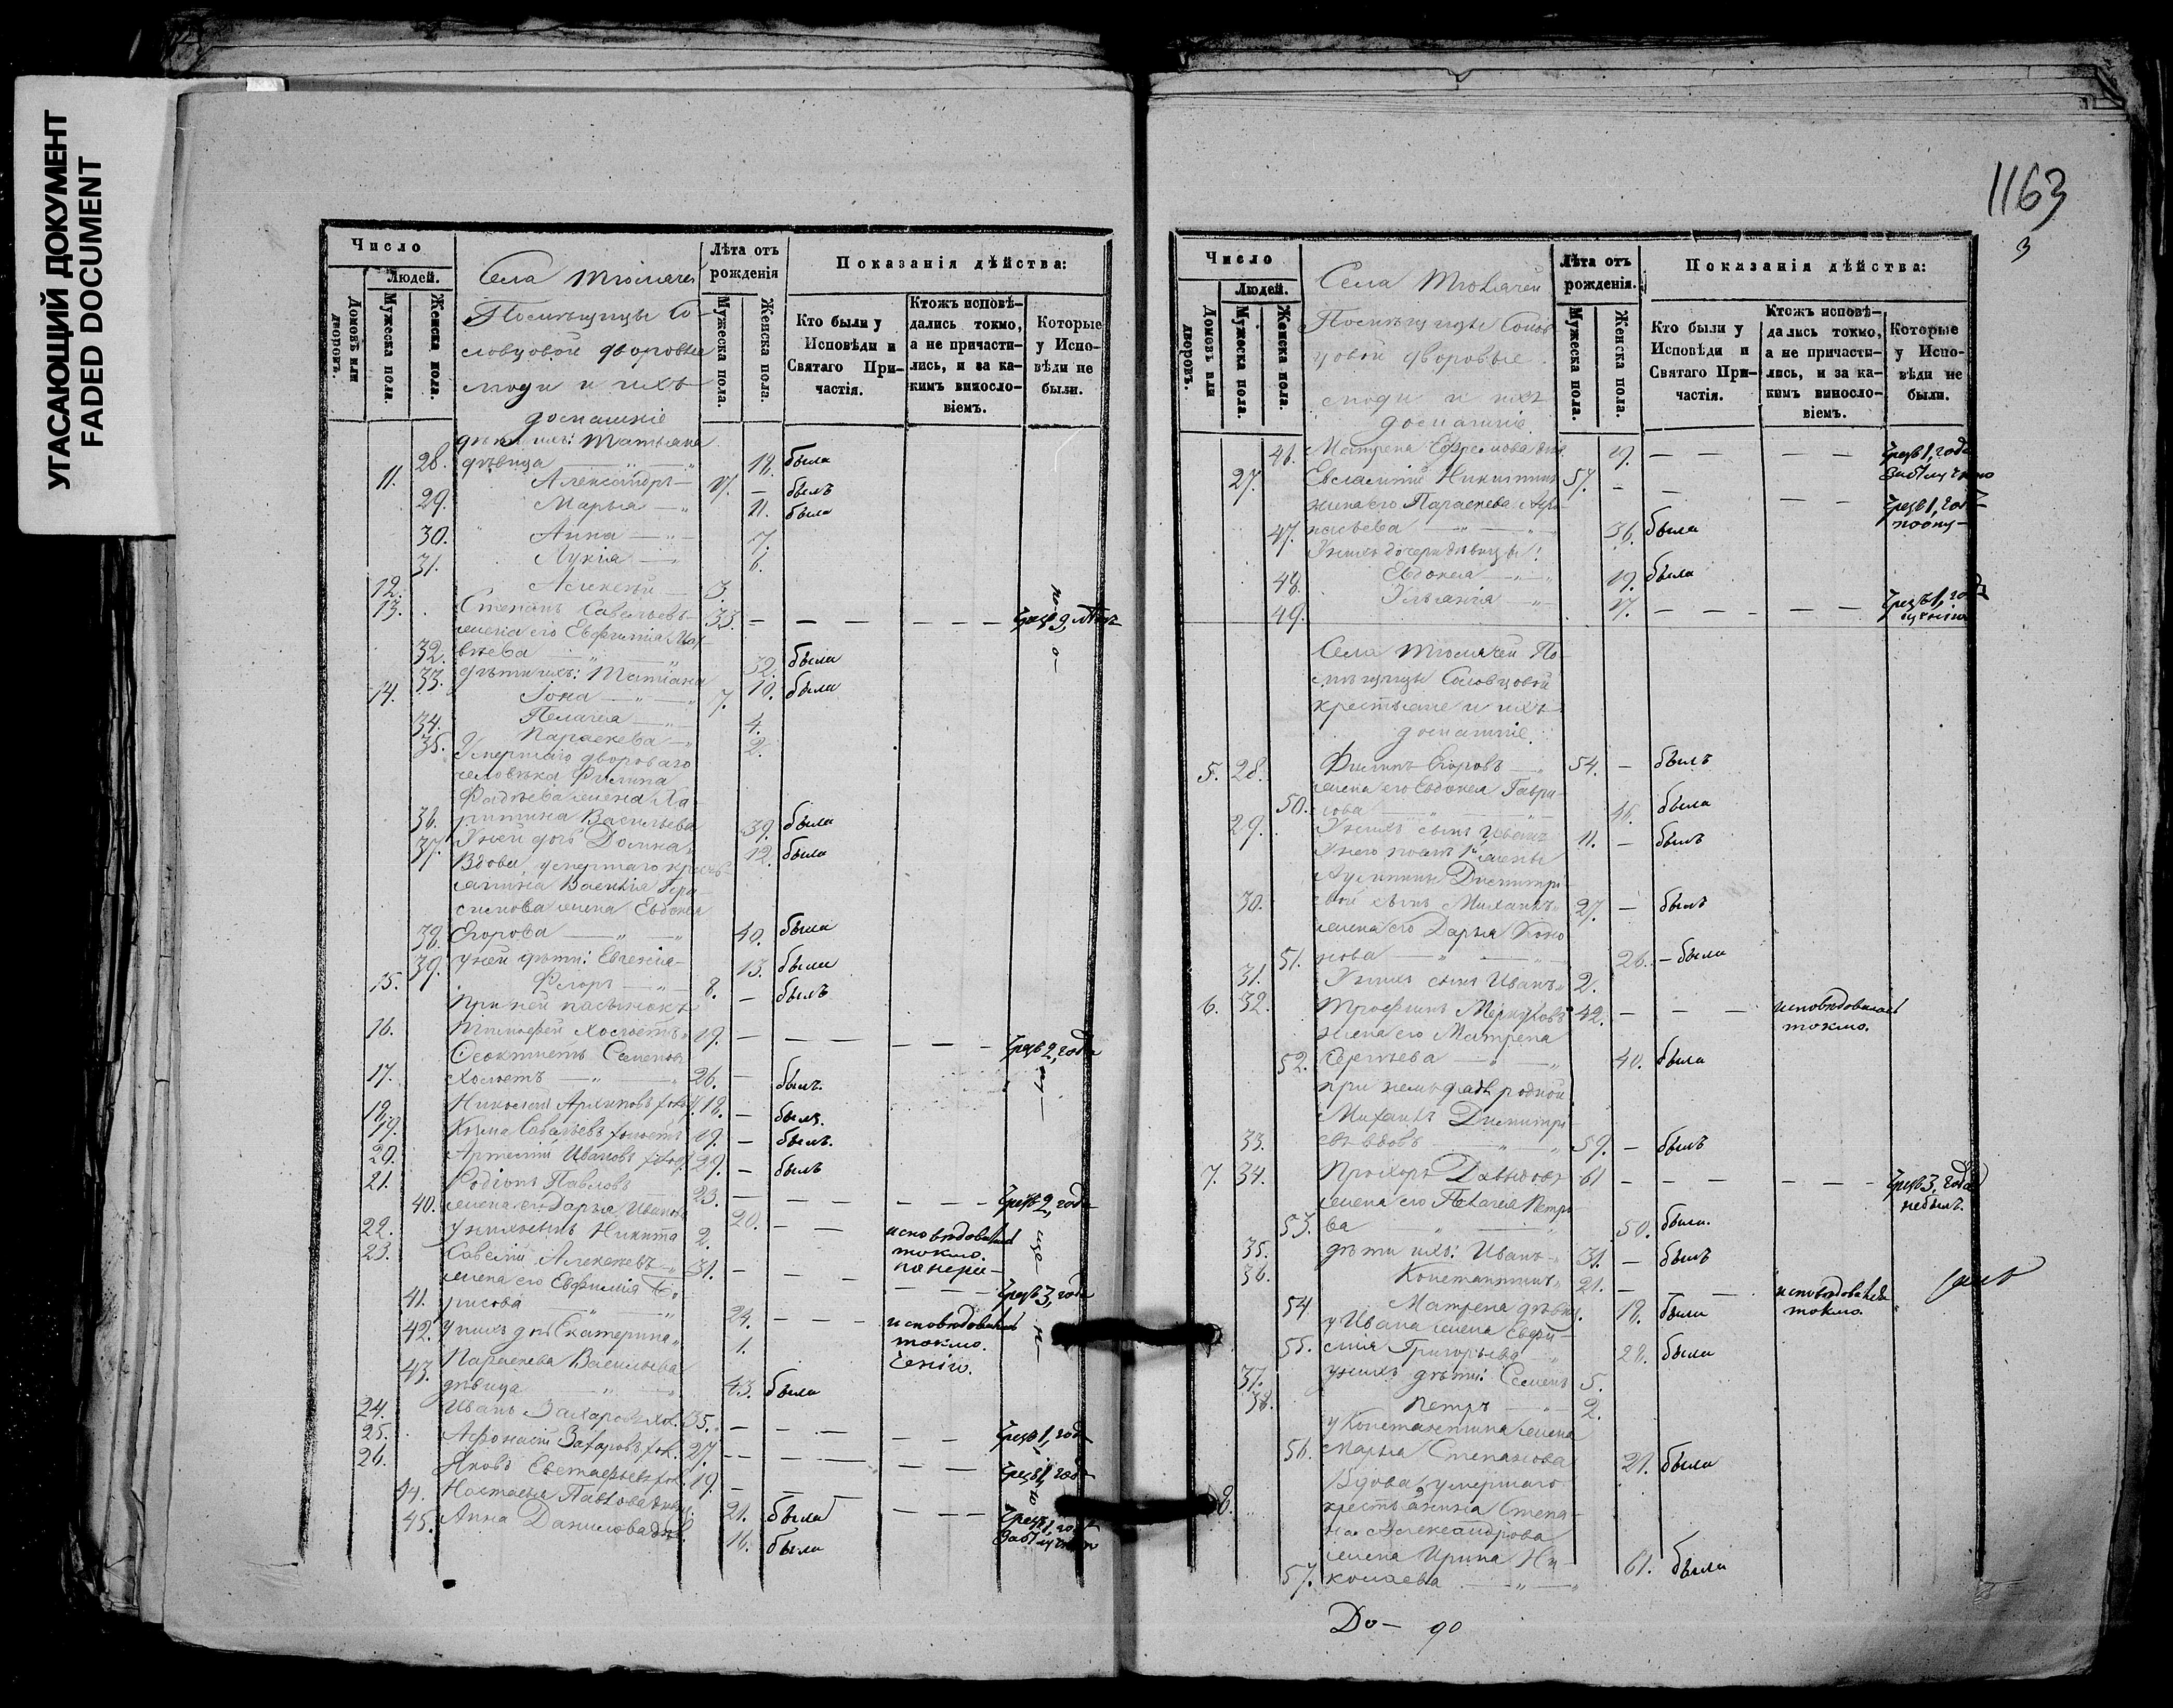 УГАСАЮЩИЙ ДОКУМЕНТ
FADED DOCUMENT
Число
Людей.
Домовъ или дворовъ.
Мужеска пола.
Женска пола.
Села
Помѣщицы Со-
ловцовой дворовые
люди и ихъ
домашніе
Лѣта отъ рожденія
Мужеска пола.
Женска пола.
Показанія дѣйства:
Кто были у Исповѣди и Святаго При-частія.
Ктожъ исповѣ-дались токмо, а не причасти-лись, и за ка-кимъ винosло-віемъ.
Которые у Испо-вѣди не были.
дѣти ихъ: Татьяна
28. дѣвица 18. была
11. Александръ 17. — былъ
29. Марья 11. была
30. Анна 7.
31. Лукія 6.
12. Алексѣй 3.
13. Степанъ Савельевъ 33. — — — — — —
жена его Евфимія
32. 32. была
33. дѣти ихъ: Татіана 10. была
14. Іона 7.
34. Пелагея 4.
35. Параскева 2.
Умершаго двороваго
человѣка Филипа
Фадѣева жена Ха-
36. ритина Васильева 39. была
37. У ней дочь Домна 12. была
Вдова, умершаго кресть-
янина Василія Гера-
симова жена Евдокея
38. Егорова 40. была
39. у ней дѣти: Евгенія 13. была
15. Флоръ 8. — былъ
При ней пасынокъ
16. Тимофей холостъ 19. — — — — — Чрезъ 2, года
Феоктистъ Семеновъ
17. холостъ 26. — былъ.
18. Николай Архиповъ хол. 18. — былъ.
19. Козма Савельевъ холостъ 19. — былъ.
20. Артемій Ивановъ 29. — былъ
21. Родіонъ Павловъ 23. — — — — Чрезъ 2, года
40. жена его Дарья Иванова 20. — — исповѣдовалась токмо.
22. у нихъ сынъ Никита 2.
23. Савелій Алексѣевъ 31. — — — — — Чрезъ 3, года
жена его Евфимія Бо-
41. рисова 24. — — — исповѣдовалась токмо.
42. У нихъ дочь Екатерина 1.
Параскева Васильева
43. дѣвица 43. была
24. Иванъ Захаровъ хол. 35. — — — — Чрезъ 1, годъ
25. Афонасій Захаровъ хол. 27. — — — — —
26. Яковъ Евстафьевъ хол. 19. — — Чрезъ 1, годъ
44. Настасья Павлова 21. была
45. Анна Данилова 16. была
1163
3
Число
Людей.
Домовъ или дворовъ.
Мужеска пола.
Женска пола.
Села
Помѣщицы Солов-
цовой дворовые
люди и ихъ
домашніе.
Лѣта отъ рожденія.
Мужеска пола.
Женска пола.
Показанія дѣйства:
Кто были у Исповѣди и Святаго При-частія.
Ктожъ исповѣ-дались токмо, а не причасти-лись, и за ка-кимъ виносло-віемъ.
Которые у Испо-вѣди не были.
46. Матрена Ефремова 19. — — — — Чрезъ 1, годъ
27. Евлампій Никитинъ 57. — — — — Чрезъ 1, годъ
жена его Параскева Афо-
47. насьева 36. была
У нихъ дочери дѣвицы:
48. Евдокея 19. была
49. Ульянія 17. — — — — — Чрезъ 1, годъ
Села По-
мѣщицы Соловцовой
крестьяне и ихъ
домашніе.
5. 28. Филипъ Егоровъ 54. — былъ
жена его Евдокея Гаври-
50. лова 46. была
29. У нихъ сынъ Иванъ 11. — былъ
У него отъ 1й жены
Дмитрі-
30. евой сынъ Михаилъ 27. — былъ
жена его Дарья Коно-
51. нова 26. — была
31. У нихъ сынъ Иванъ 2.
6. 32. Трофимъ Меркуловъ 42. — — — исповѣдовался токмо.
жена его Матрена
52. Сергѣева 40. была
при немъ дядя родной
Михаилъ Дмитрі-
33. евъ вдовъ 59. — былъ
7. 34. Прохоръ Давыдовъ 61 — — — — — Чрезъ 3, года небылъ.
жена его Пелагея Петро-
53. ва 50. была.
35. дѣти ихъ: Иванъ 31. — былъ
36. Константинъ 21. — — исповѣдовался токмо.
54 Матрена дѣвица 18. была
у Ивана жена Евфи-
55. мія Григорьева 28. была
37. у нихъ дѣти: Семенъ 5.
38. Петръ 2.
у Константина жена
56. Марья Степанова 21. была
8. Вдова, умершаго
крестьянина Степа-
на Александрова
жена Ирина Ни-
57. колаева 61. была
До —